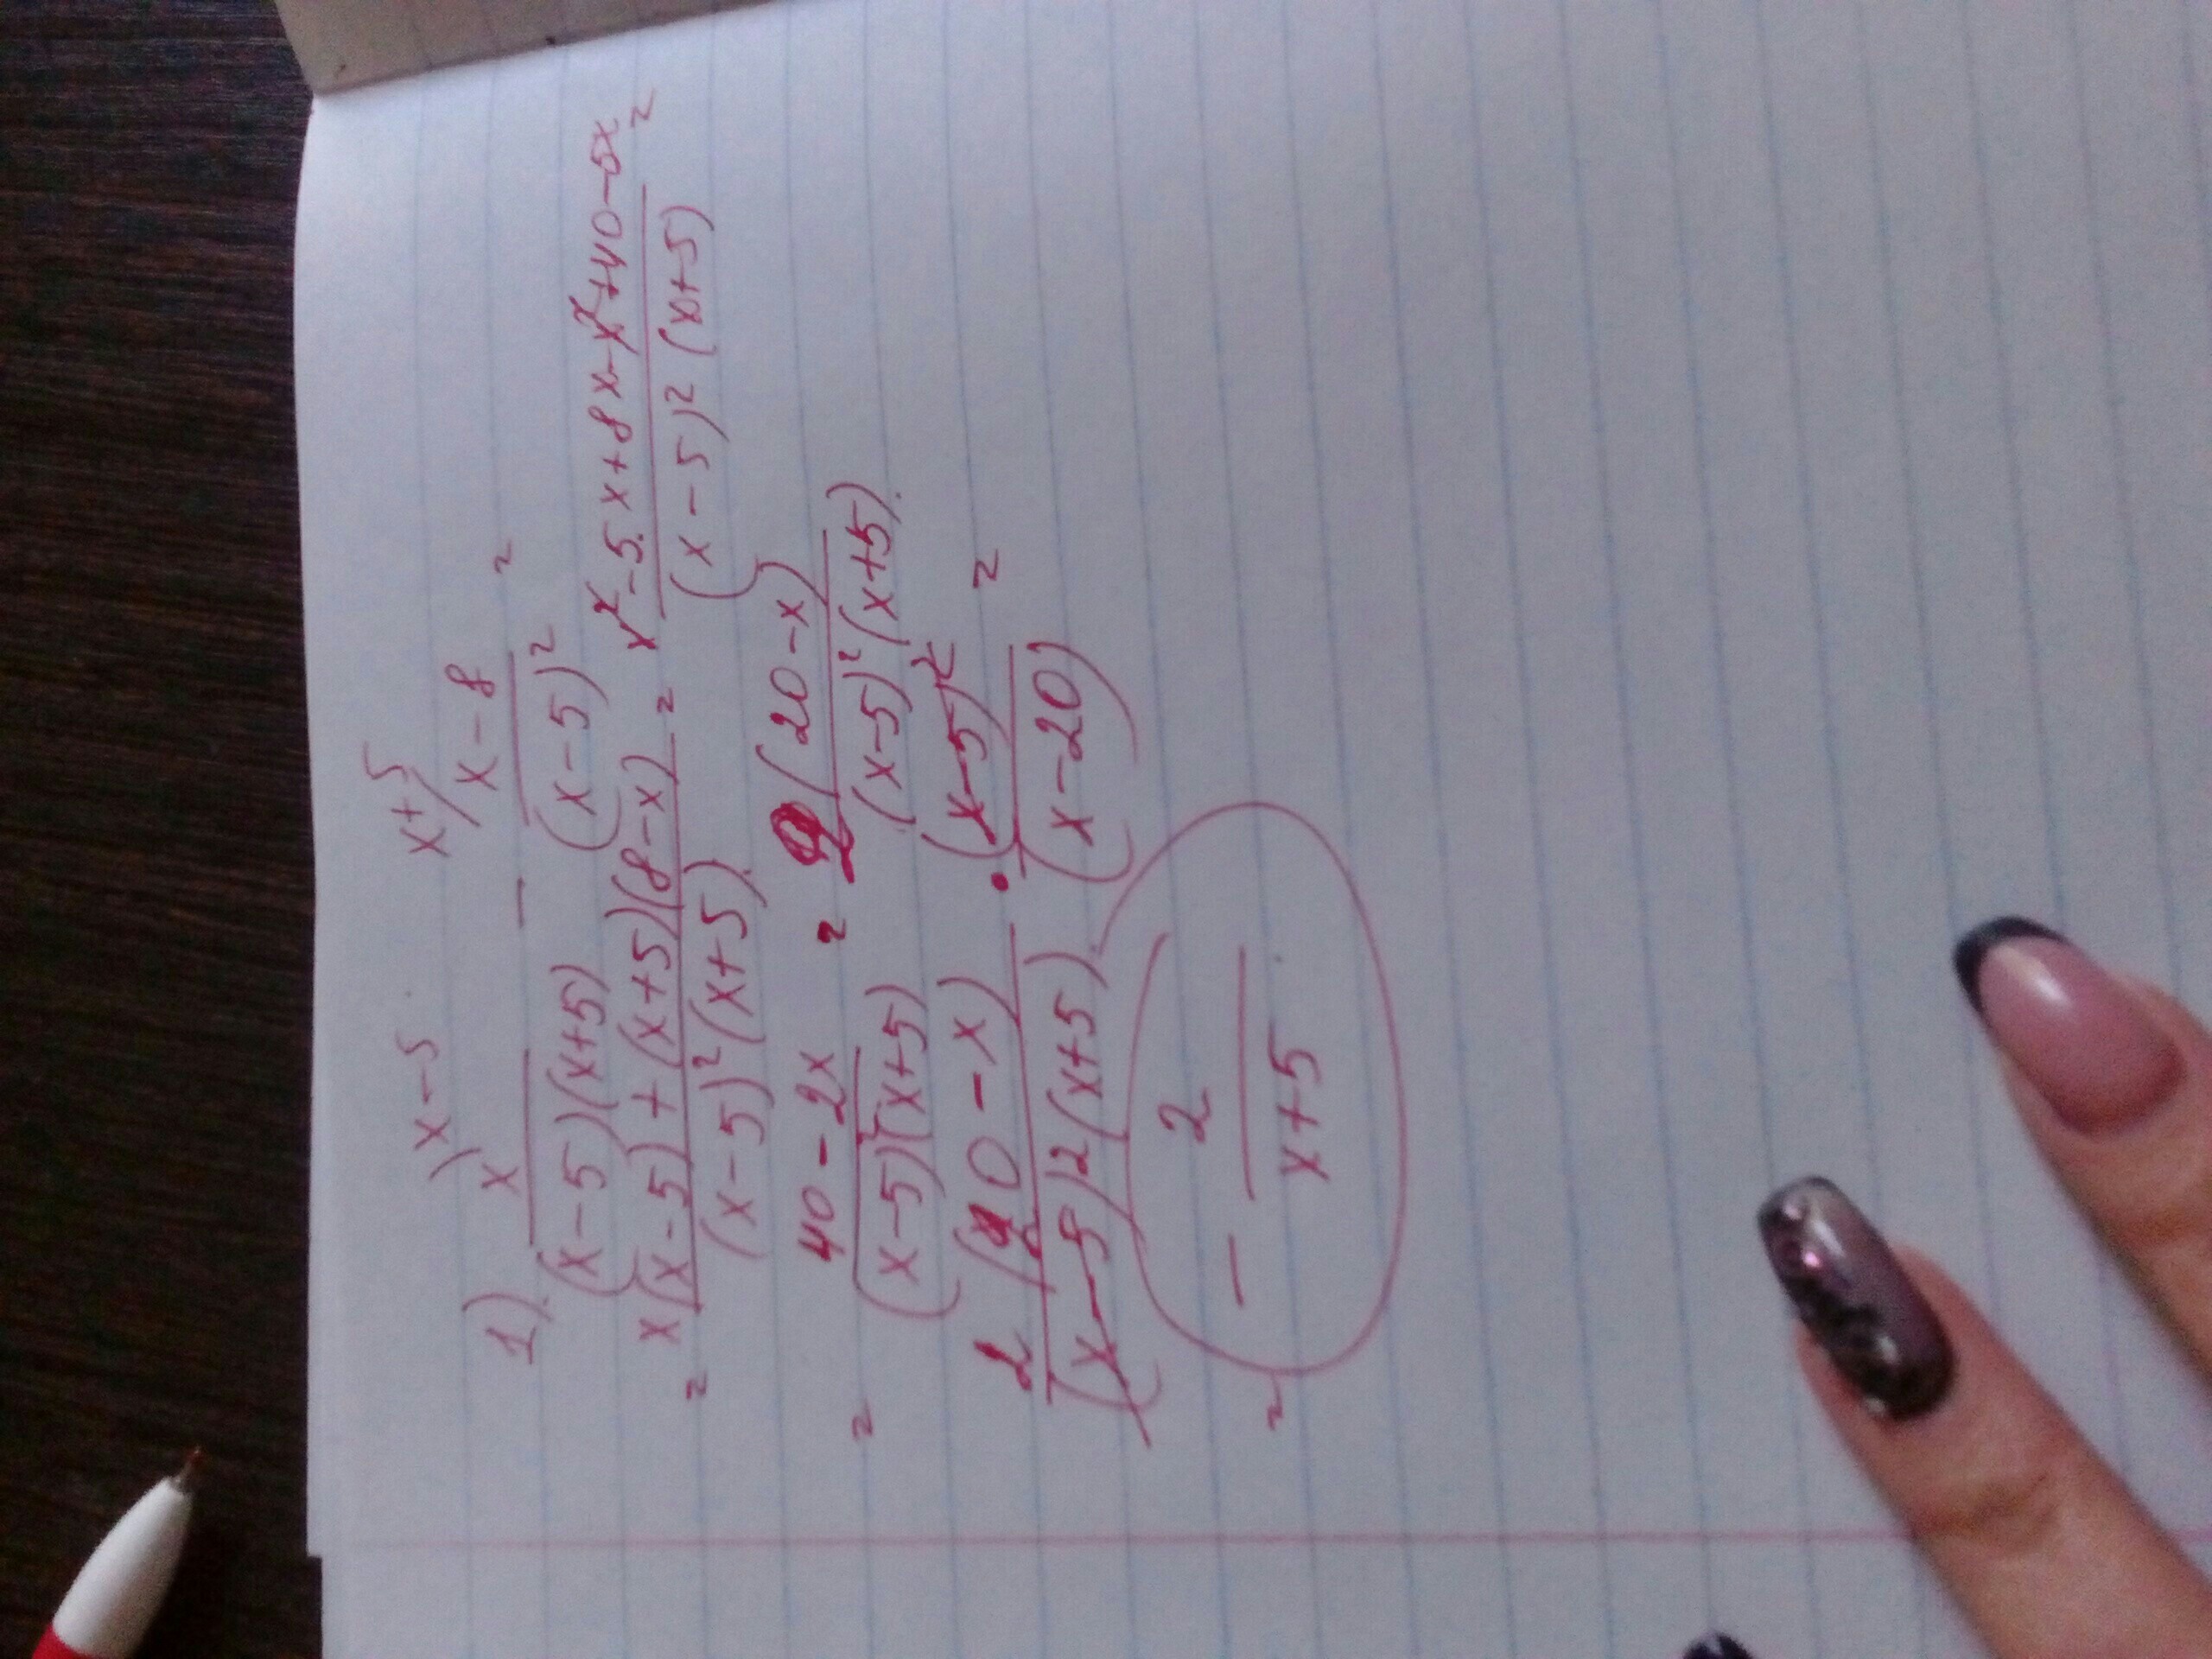 x-5 x+5
1) x/((x-5)(x+5)) - (x-8)/(x-5)² =
= (x(x-5)+(x+5)(8-x))/((x-5)²(x+5)) = (x²-5x+8x-x²+40-5x)/((x-5)²(x+5)) =
= (40-2x)/((x-5)²(x+5)) = 2(20-x)/((x-5)²(x+5))
2(20-x)/((x-5)2(x+5)) · (x-5)²/(x-20) =
= - 2/(x+5)